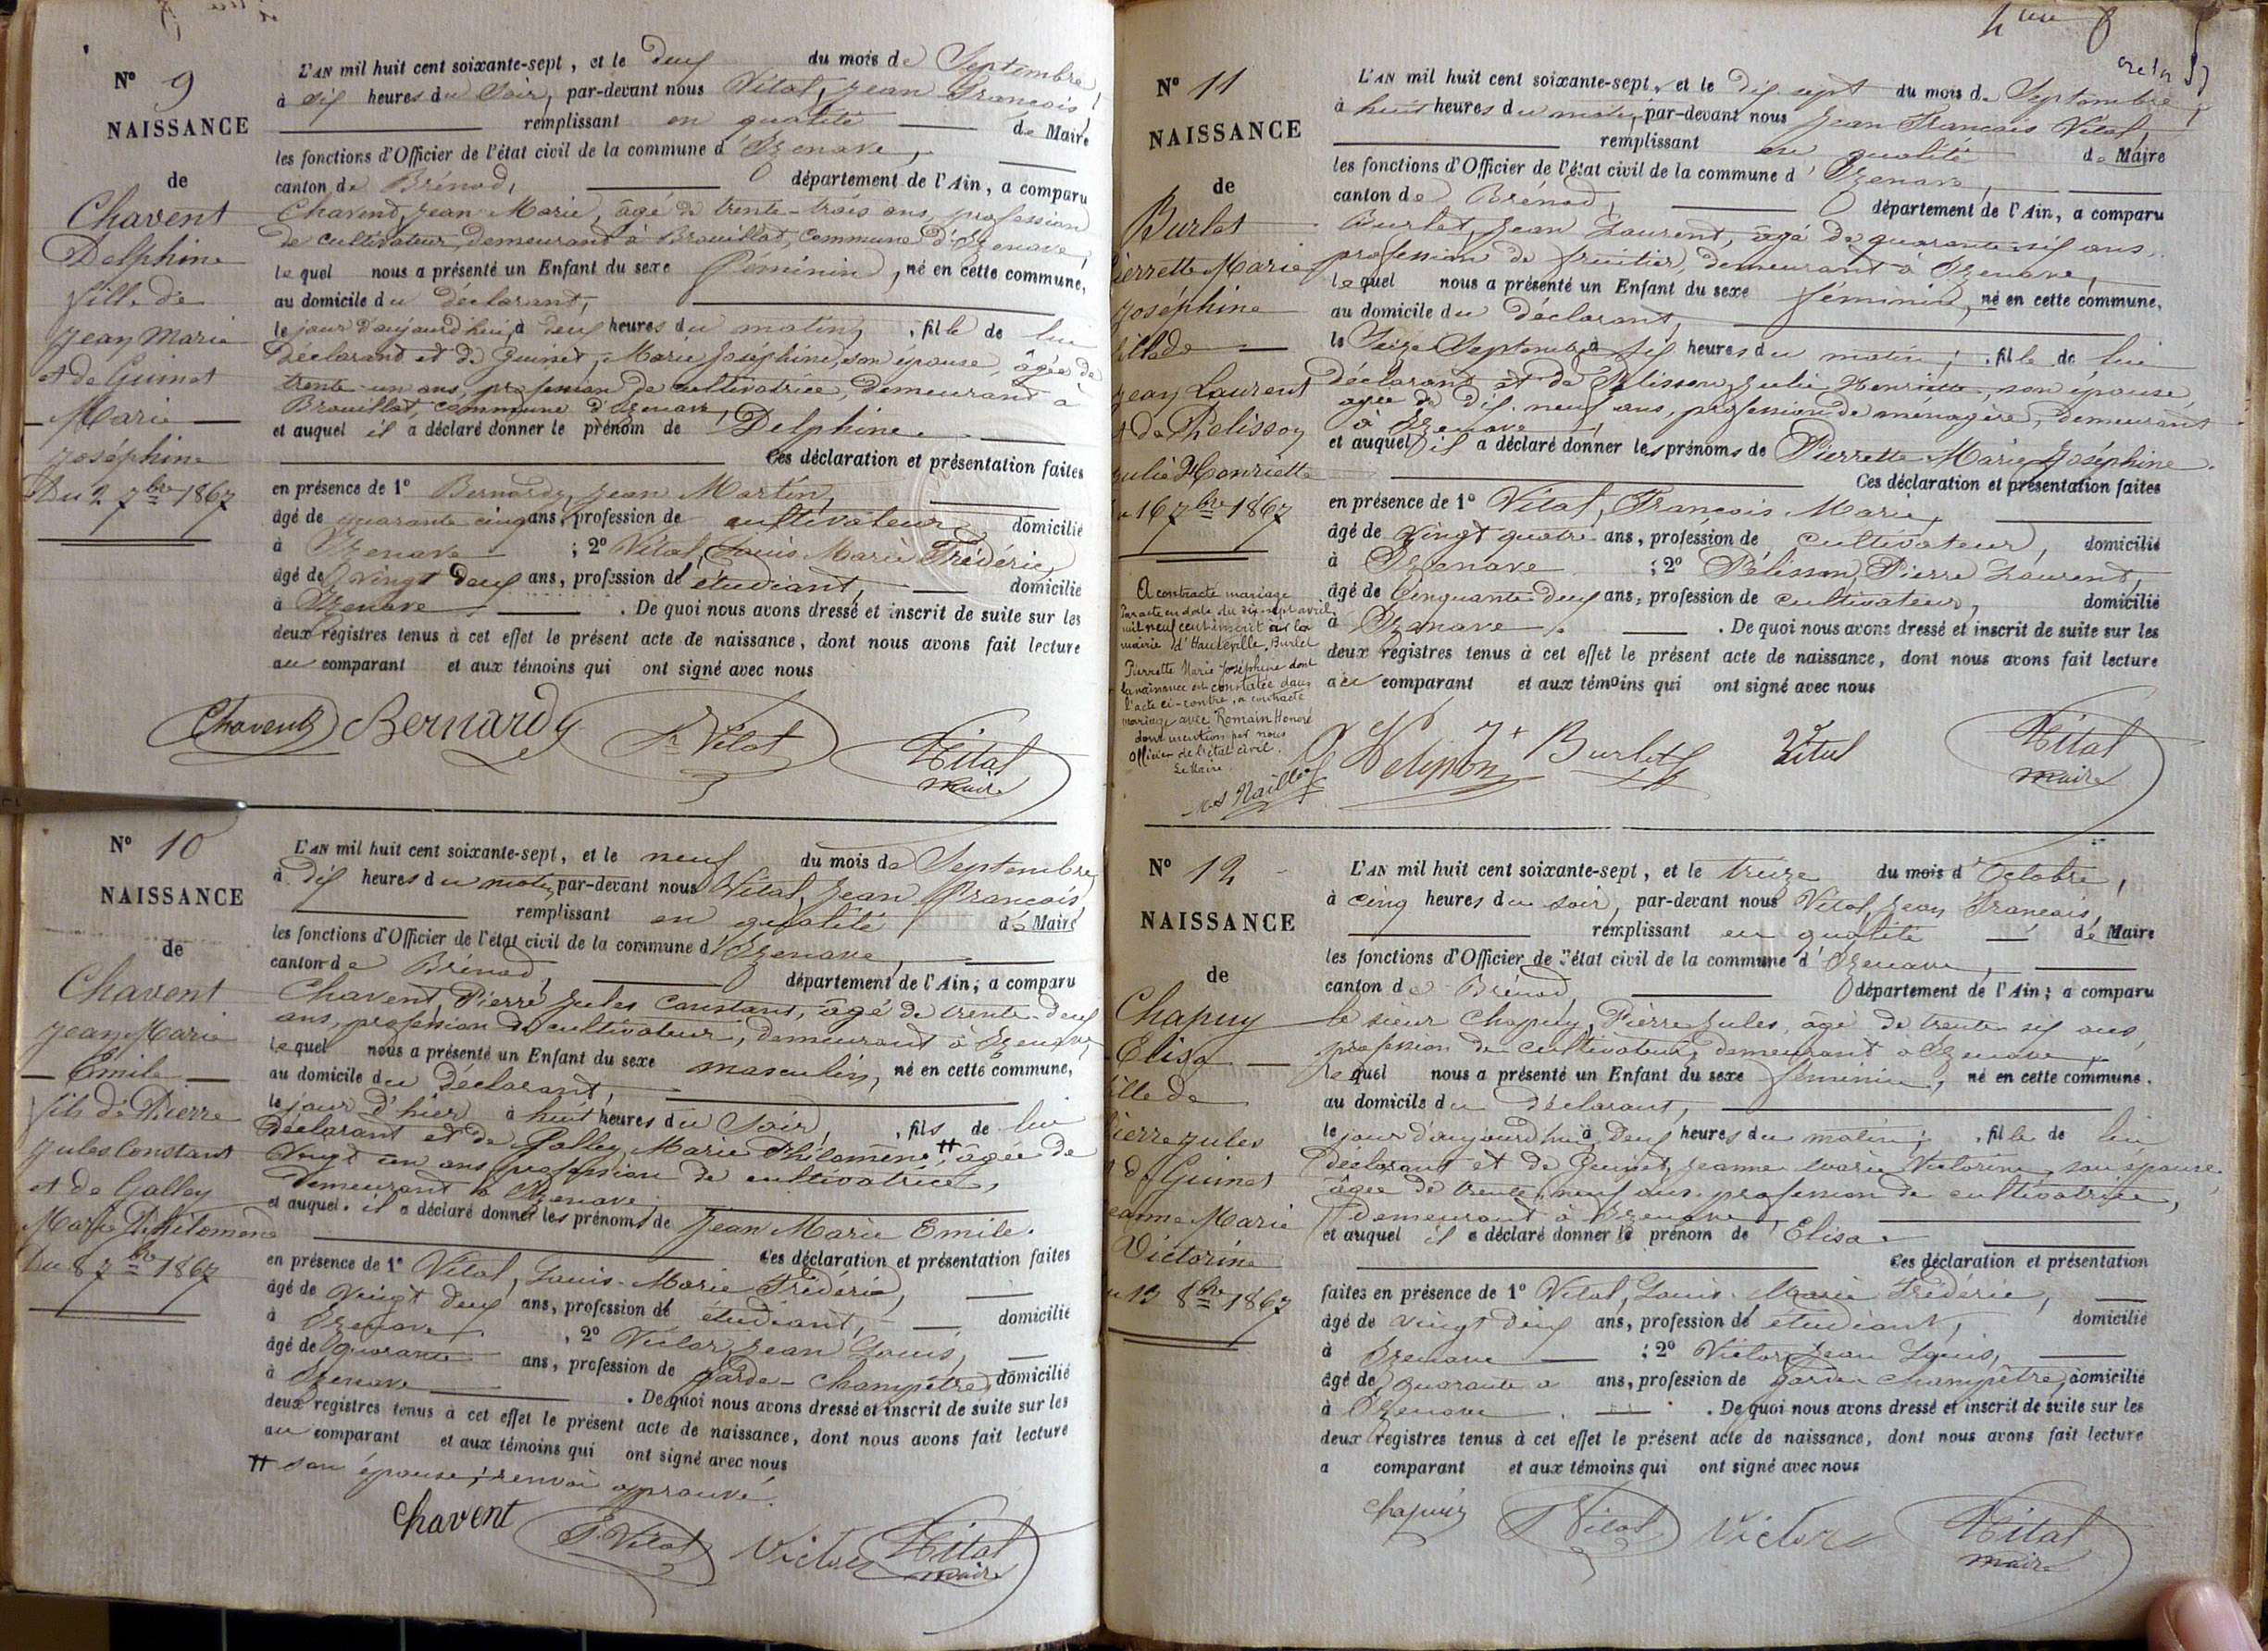 N° 9
NAISSANCE
de
Chavent
Delphine
fille de
Jean Marie
et de Guinet
Marie
Joséphine
Du 2 7bre 1867
L'AN mil huit cent soixante-sept, et le deux du mois de Septembre,
à six heures du Soir, par-devant nous Vital, Jean François,
remplissant en qualité de Maire
les fonctions d'Officier de l'état civil de la commune d'Izenave,
canton de Brénod, département de l'Ain, a comparu
Chavent, Jean Marie, âgé de trente-trois ans, profession
de cultivateur, demeurant à Brouillat, commune d'Izenave,
lequel nous a présenté un Enfant du sexe féminin, né en cette commune,
au domicile du déclarant,
le jour d'aujourd'hui, à deux heures du matin, fille de lui
déclarant et de Guinet, Marie Joséphine, son épouse, âgée de
trente-un ans, profession de cultivatrice, demeurant à
Brouillat, commune d'Izenave,
et auquel il a déclaré donner le prénom de Delphine.
Ces déclaration et présentation faites
en présence de 1° Bernardy, Jean Martin,
âgé de quarante cinq ans, profession de cultivateur, domicilié
à Izenave ; 2° Vital, Louis Marie Frédéric,
âgé de vingt deux ans, profession de étudiant, domicilié
à Izenave. De quoi nous avons dressé et inscrit de suite sur les
deux registres tenus à cet effet le présent acte de naissance, dont nous avons fait lecture
au comparant et aux témoins qui ont signé avec nous
Chavent Bernardy Vital Vital
maire
N° 10
NAISSANCE
de
Chavent
Jean Marie
Emile
fils de Pierre
Jules Constant
et de Galley
Marie Philomène
Du 8 7bre 1867
L'AN mil huit cent soixante-sept, et le neuf du mois de Septembre,
à dix heures du matin, par-devant nous Vital, Jean François,
remplissant en qualité de Maire
les fonctions d'Officier de l'état civil de la commune d'Izenave,
canton de Brénod, département de l'Ain, a comparu
Chavent, Pierre Jules Constant, âgé de trente-deux
ans, profession de cultivateur, demeurant à Izenave,
lequel nous a présenté un Enfant du sexe masculin, né en cette commune,
au domicile du déclarant,
le jour d'hier à huit heures du Soir, fils de lui
déclarant et de Galley, Marie Philomène, # âgée de
vingt un ans, profession de cultivatrice,
demeurant à Izenave
et auquel il a déclaré donner les prénoms de Jean Marie Emile.
Ces déclaration et présentation faites
en présence de 1° Vital, Louis-Marie Frédéric,
âgé de vingt deux ans, profession de étudiant, domicilié
à Izenave, 2° Victor, Jean Louis,
âgé de quarante ans, profession de garde-champêtre, domicilié
à Izenave. De quoi nous avons dressé et inscrit de suite sur les
deux registres tenus à cet effet le présent acte de naissance, dont nous avons fait lecture
au comparant et aux témoins qui ont signé avec nous
# son épouse; renvoi approuvé.
Chavent Vital Victor Vital
maire
N° 11
NAISSANCE
de
Burlet
Pierrette Marie
Joséphine
fille de
Jean Laurent
et de Pelisson
Julie Henriette
16 7bre 1867
A contracté mariage
Par acte en date du dix-sept avril
mil neuf cent à la
mairie d'Hauteville, Burlet
Pierrette Marie Joséphine dont
la naissance est constatée dans
l'acte ci-contre, a contracté
mariage avec Romain Honoré
dont mention par nous
Officier de l'état civil.
Le Maire
L'AN mil huit cent soixante-sept, et le dix sept du mois de Septembre,
à huit heures du matin, par-devant nous Jean François Vital,
remplissant en qualité de Maire
les fonctions d'Officier de l'état civil de la commune d'Izenave,
canton de Brénod, département de l'Ain, a comparu
Burlet, Jean Laurent, âgé de quarante-six ans,
profession de fruitier, demeurant à Izenave,
lequel nous a présenté un Enfant du sexe féminin, né en cette commune,
au domicile du déclarant,
le Seize Septembre à six heures du matin, fille de lui
déclarant et de Pélisson, Julie Henriette, son épouse,
âgée de dix-neuf ans, profession de ménagère, demeurant
à Izenave,
et auquel il a déclaré donner les prénoms de Pierrette Marie Joséphine.
Ces déclaration et présentation faites
en présence de 1° Vital, François Marie,
âgé de vingt quatre ans, profession de cultivateur, domicilié
à Izenave ; 2° Pélisson, Pierre Laurent,
âgé de cinquante-deux ans, profession de cultivateur, domicilié
à Izenave. De quoi nous avons dressé et inscrit de suite sur les
deux registres tenus à cet effet le présent acte de naissance, dont nous avons fait lecture
au comparant et aux témoins qui ont signé avec nous
Burlet Vital Vital
maire
N° 12
NAISSANCE
de
Chapuy
Elisa
fille de
Pierre Jules
et de Guinet
Jeanne Marie
Victorine
13 8bre 1867
L'AN mil huit cent soixante-sept, et le treize du mois d'Octobre,
à cinq heures du soir, par-devant nous Vital, Jean François,
remplissant en qualité de Maire
les fonctions d'Officier de l'état civil de la commune d'Izenave,
canton de Brénod, département de l'Ain; a comparu
le sieur Chapuy, Pierre Jules, âgé de trente six ans,
profession de cultivateur, demeurant à Izenave,
lequel nous a présenté un Enfant du sexe féminin, né en cette commune.
au domicile du déclarant,
le jour d'aujourd'hui à deux heures du matin; fille de lui
déclarant et de Guinet, Jeanne Marie Victorine, son épouse,
âgée de trente-neuf ans, profession de cultivatrice,
demeurant à Izenave,
et auquel il a déclaré donner le prénom de Elisa.
Ces déclaration et présentation
faites en présence de 1° Vital, Louis Marie Frédéric,
âgé de vingt deux ans, profession de étudiant, domicilié
à Izenave ; 2° Victor, Jean Louis,
âgé de quarante ans, profession de garde champêtre, domicilié
à Izenave. De quoi nous avons dressé et inscrit de suite sur les
deux registres tenus à cet effet le présent acte de naissance, dont nous avons fait lecture
a comparant et aux témoins qui ont signé avec nous
Chapuis Vital Victor Vital
maire